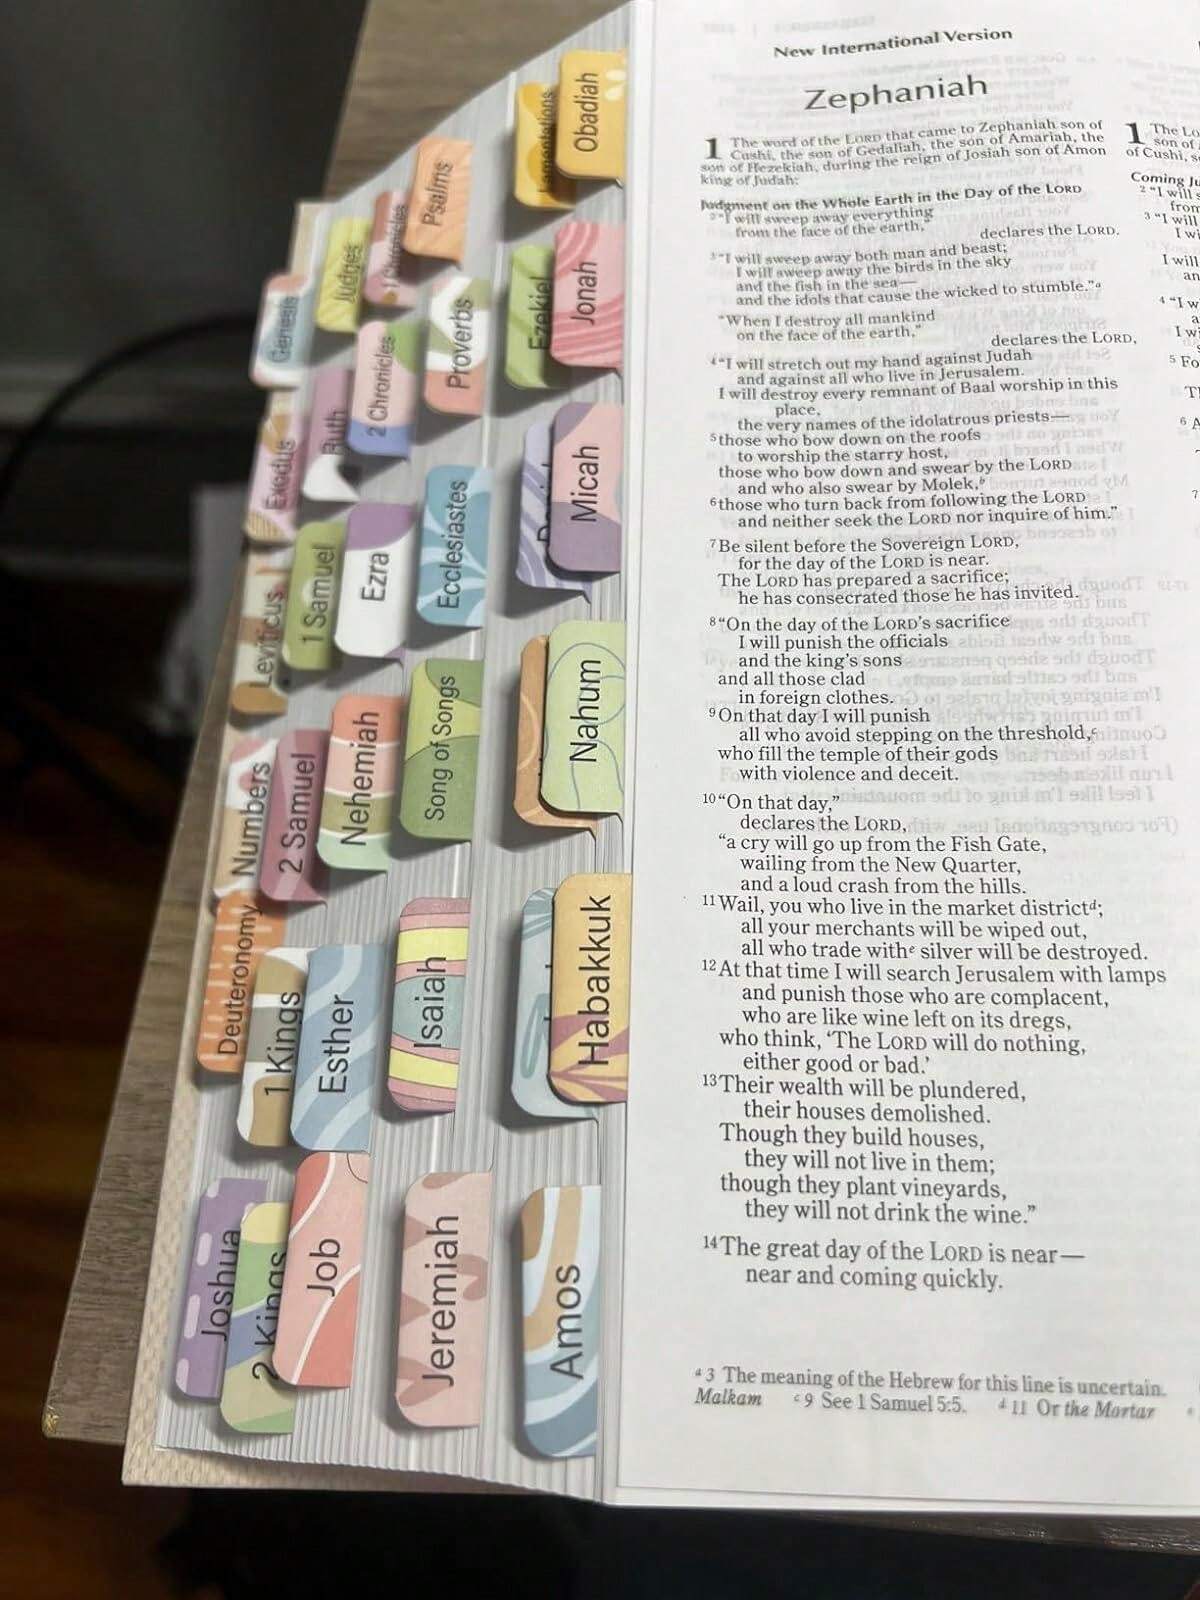 Genesis
Exodus
Leviticus
Numbers
Deuteronomy
Joshua
Judges
Ruth
1 Samuel
2 Samuel
1 Kings
2 Kings
1 Chronicles
2 Chronicles
Ezra
Nehemiah
Esther
Job
Psalms
Proverbs
Ecclesiastes
Song of Songs
Isaiah
Jeremiah
Lamentations
Ezekiel
Amos
Obadiah
Jonah
Micah
Nahum
Habakkuk
New International Version
Zephaniah
1 The word of the LORD that came to Zephaniah son of
Cushi, the son of Gedaliah, the son of Amariah, the
son of Hezekiah, during the reign of Josiah son of Amon
king of Judah:
Judgment on the Whole Earth in the Day of the LORD
2 "I will sweep away everything
from the face of the earth,"
declares the LORD.
3 "I will sweep away both man and beast;
I will sweep away the birds in the sky
and the fish in the sea—
and the idols that cause the wicked to stumble."a
"When I destroy all mankind
on the face of the earth,"
declares the LORD,
4 "I will stretch out my hand against Judah
and against all who live in Jerusalem.
I will destroy every remnant of Baal worship in this
place,
the very names of the idolatrous priests—
5 those who bow down on the roofs
to worship the starry host,
those who bow down and swear by the LORD
and who also swear by Molek,b
6 those who turn back from following the LORD
and neither seek the LORD nor inquire of him."
7 Be silent before the Sovereign LORD,
for the day of the LORD is near.
The LORD has prepared a sacrifice;
he has consecrated those he has invited.
8 "On the day of the LORD's sacrifice
I will punish the officials
and the king's sons
and all those clad
in foreign clothes.
9 On that day I will punish
all who avoid stepping on the threshold,c
who fill the temple of their gods
with violence and deceit.
10 "On that day,"
declares the LORD,
"a cry will go up from the Fish Gate,
wailing from the New Quarter,
and a loud crash from the hills.
11 Wail, you who live in the market districtd;
all your merchants will be wiped out,
all who trade withe silver will be destroyed.
12 At that time I will search Jerusalem with lamps
and punish those who are complacent,
who are like wine left on its dregs,
who think, 'The LORD will do nothing,
either good or bad.'
13 Their wealth will be plundered,
their houses demolished.
Though they build houses,
they will not live in them;
though they plant vineyards,
they will not drink the wine."
14 The great day of the LORD is near—
near and coming quickly.
a 3 The meaning of the Hebrew for this line is uncertain.
Malkam c 9 See 1 Samuel 5:5. d 11 Or the Mortar
1 The Lo
son of
of Cushi, s
Coming Ju
2 "I will s
from
3 "I will
I wi
I will
an
4 "I w
a
I wi
5 Fo
6 A
7